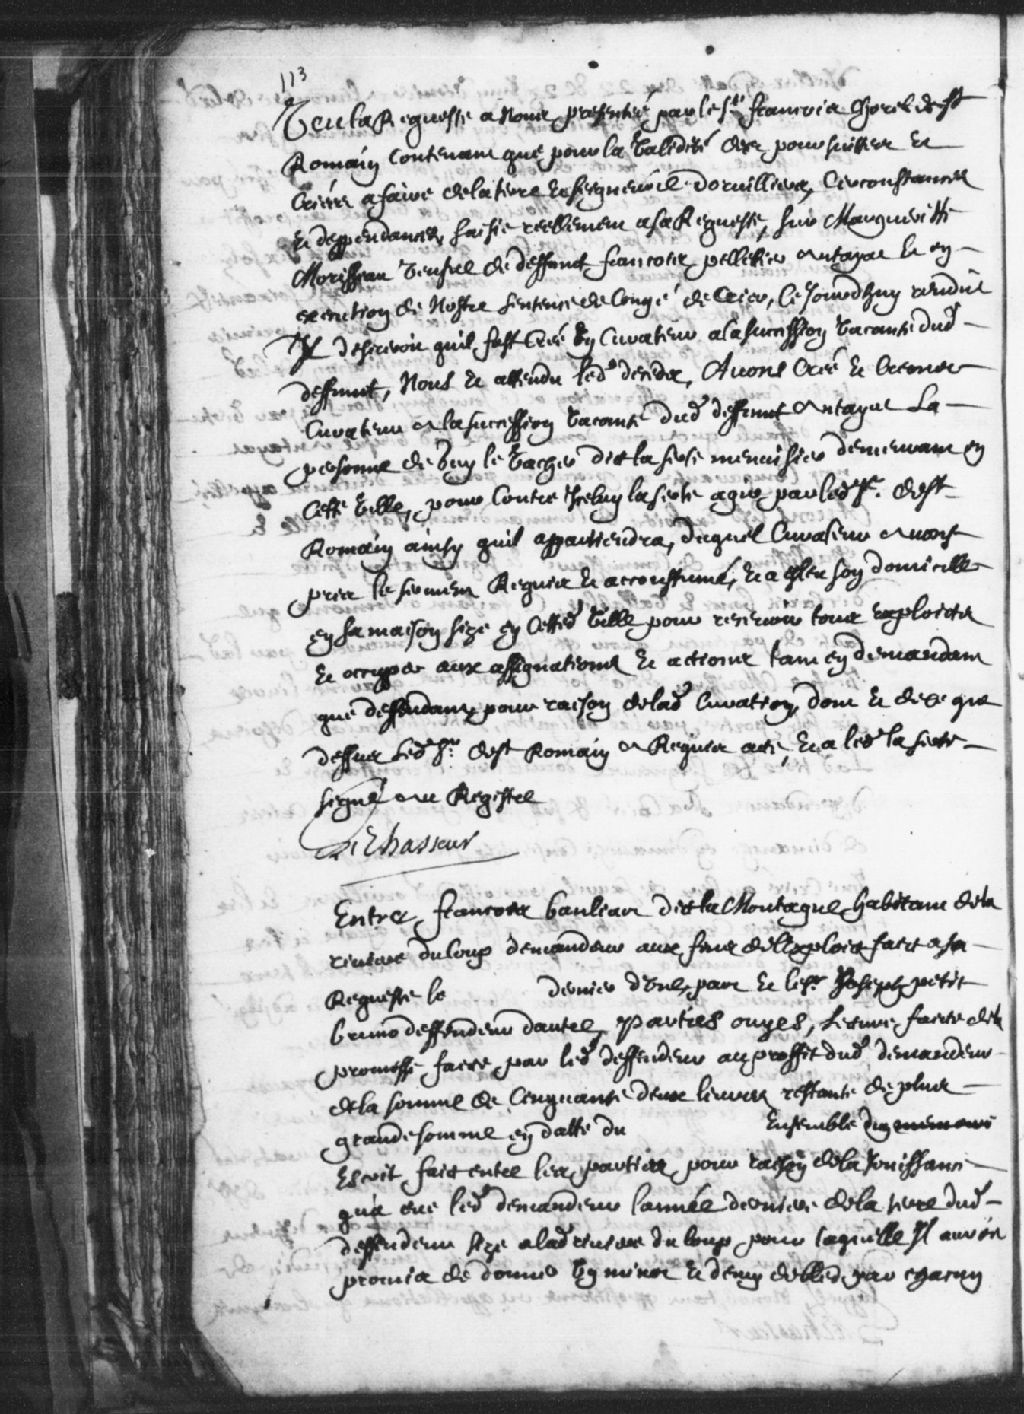 113
Veu la Requeste a Nous presentée par le Sr francois Chorel de St
Romain Contenant que pour la validité des poursuittes et
Criées a faire de la terre et seigneurie dorvilliers, Circonstances
et deppendances saisie reellement a sa Requeste, sur Margueritte
Morisseau veufve de deffunt francois pelletier antaya et en
execution de Nostre sentence de Congé de Crier, ce Jourdhuy rendüe
Il desireroit quil fust Créé un Curateur a la succession vacante dud
deffunt, Nous et attendu led deceds, Avons Créé et
Curateur a la succession vacante dud deffunt antaya La
personne de Guy le vacher dit la serte menuisier demeurant en
Cette ville, pour Contre Iceluy laserte agir par led Sr. de St
Romain ainsy quil appartiendra, duquel Curateur avons
pris le serment Requis et accoustumé, et a esleu son domicille
en sa maison size en Cetted ville pour recevoir tous exploicts
et occuper aux assignations et actions tant en demandant
que deffendant pour raison de lad Curation, dont et de ce que
dessus led Sr. de St Romain a Requis acte, et a led laserte
signé au Registre
LeChasseur
Entre francois banliard dit la Montagne habitant de la
riviere du loup demandeur aux fins de l'Exploict faict a sa
Requeste le dernier d'une part et le sr Joseph petit
bruno deffendeur dautre, parties ouyes, Lecture faicte de la
promesse faicte par led deffendeur au proffit dud demandeur
de la somme de Cinquante deux livres restante de plus
grande somme en datte du Ensemble
Escrit fait entre les parties pour raison de la Jouissance
qu'a eue led demandeur lannée derniere de la terre dud
deffendeur size a lad riviere du loup pour laquelle Il auroit
promis de donner un minot et demy de bled par chacun